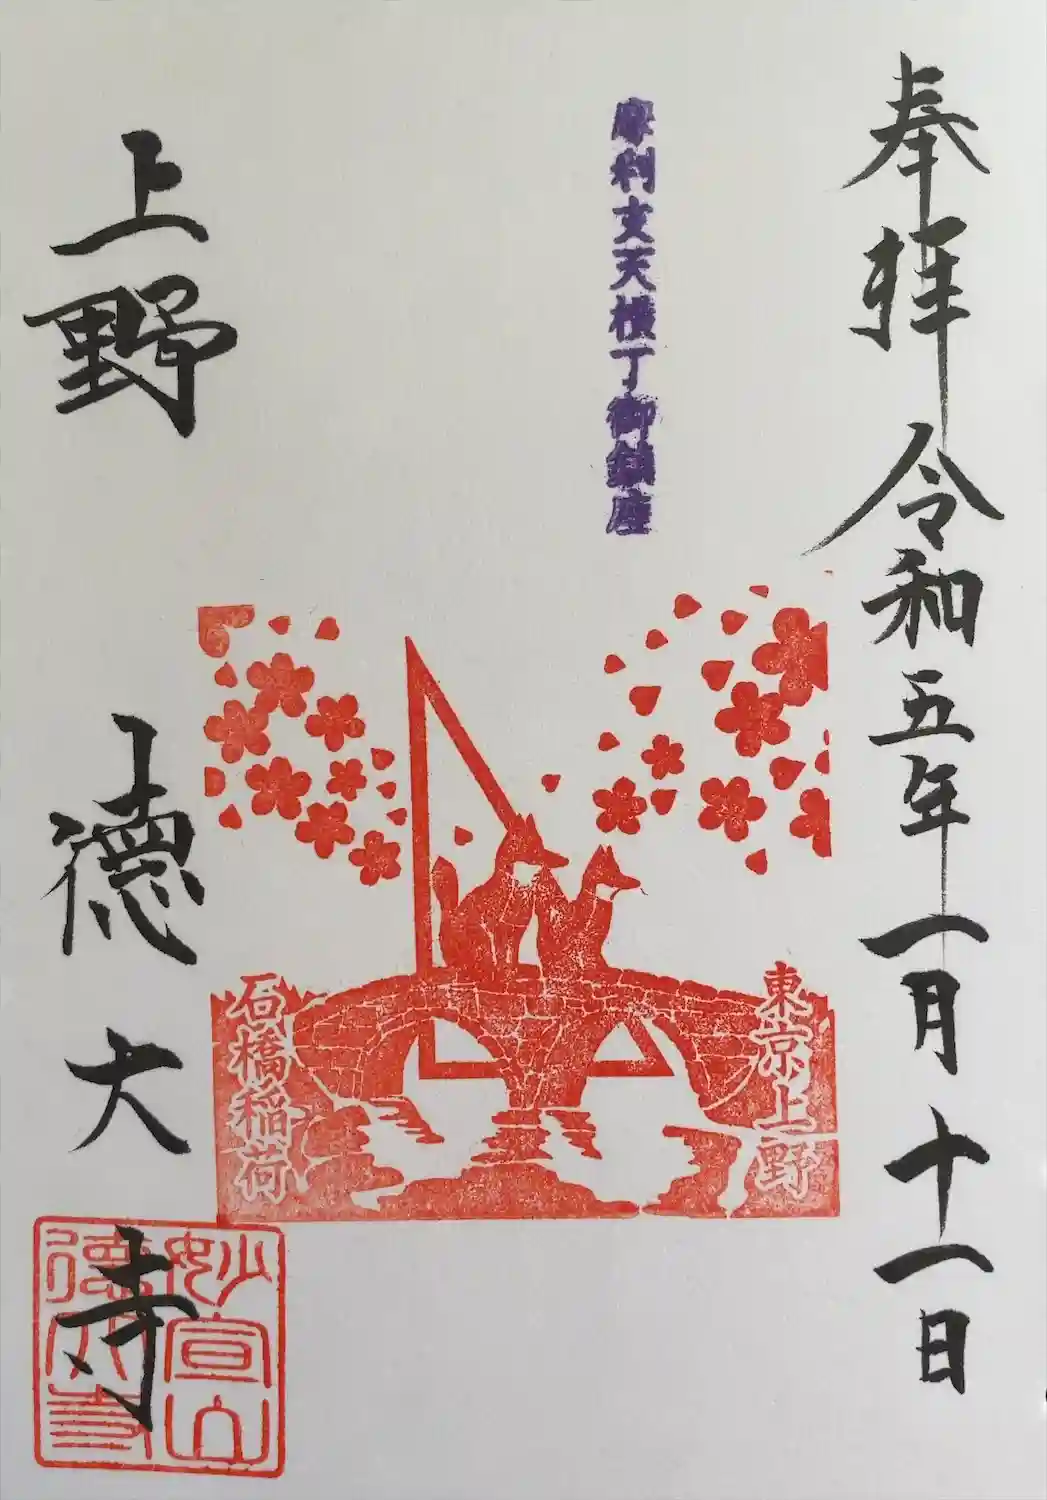 奉拝 令和五年一月十一日
摩利支天横丁御鎮座
東京上野
石橋稲荷
上野 徳大寺
妙宣山
徳大寺